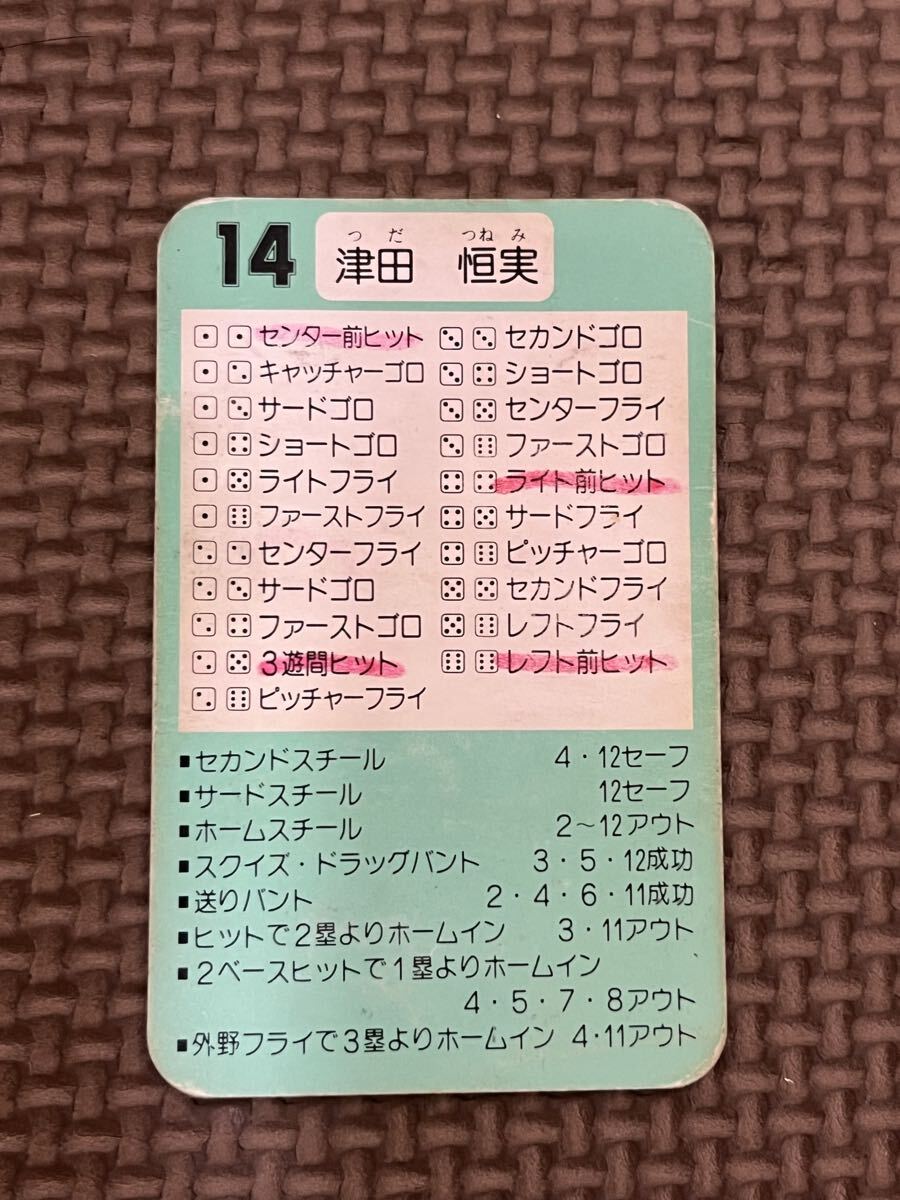 14
つだ つねみ
津田 恒実
センター前ヒット
キャッチャーゴロ
サードゴロ
ショートゴロ
ライトフライ
ファーストフライ
センターフライ
サードゴロ
ファーストゴロ
3遊間ヒット
ピッチャーフライ
セカンドゴロ
ショートゴロ
センターフライ
ファーストゴロ
ライト前ヒット
サードフライ
ピッチャーゴロ
セカンドフライ
レフトフライ
レフト前ヒット
■セカンドスチール 4・12セーフ
■サードスチール 12セーフ
■ホームスチール 2～12アウト
■スクイズ・ドラッグバント 3・5・12成功
■送りバント 2・4・6・11成功
■ヒットで2塁よりホームイン 3・11アウト
■2ベースヒットで1塁よりホームイン
4・5・7・8アウト
■外野フライで3塁よりホームイン 4・11アウト